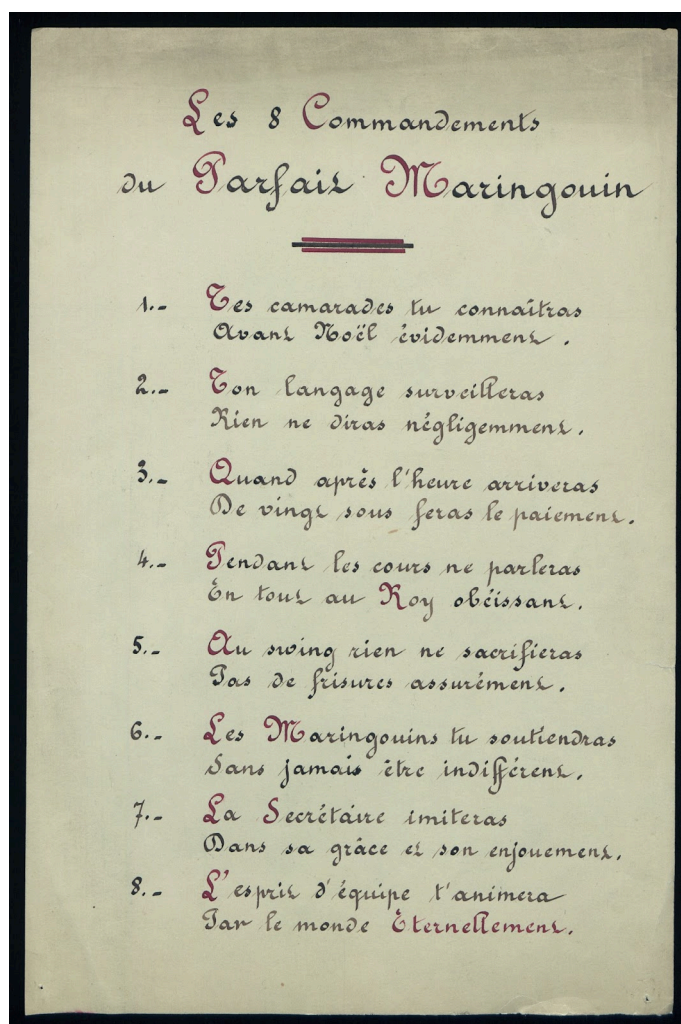 Les 8 Commandements
du Parfait Maringouin
1.- Tes camarades tu connaîtras
Avant Noël évidemment.
2.- Ton langage surveilleras
Rien ne diras négligemment.
3.- Quand après l'heure arriveras
De vingt sous feras le paiement.
4.- Pendant les cours ne parleras
En tout au Roy obéissant.
5.- Au swing rien ne sacrifieras
Pas de frisures assurément.
6.- Les Maringouins tu soutiendras
Sans jamais être indifférent.
7.- La Secrétaire imiteras
Dans sa grâce et son enjouement.
8.- L'esprit d'équipe t'animera
Par le monde Éternellement.